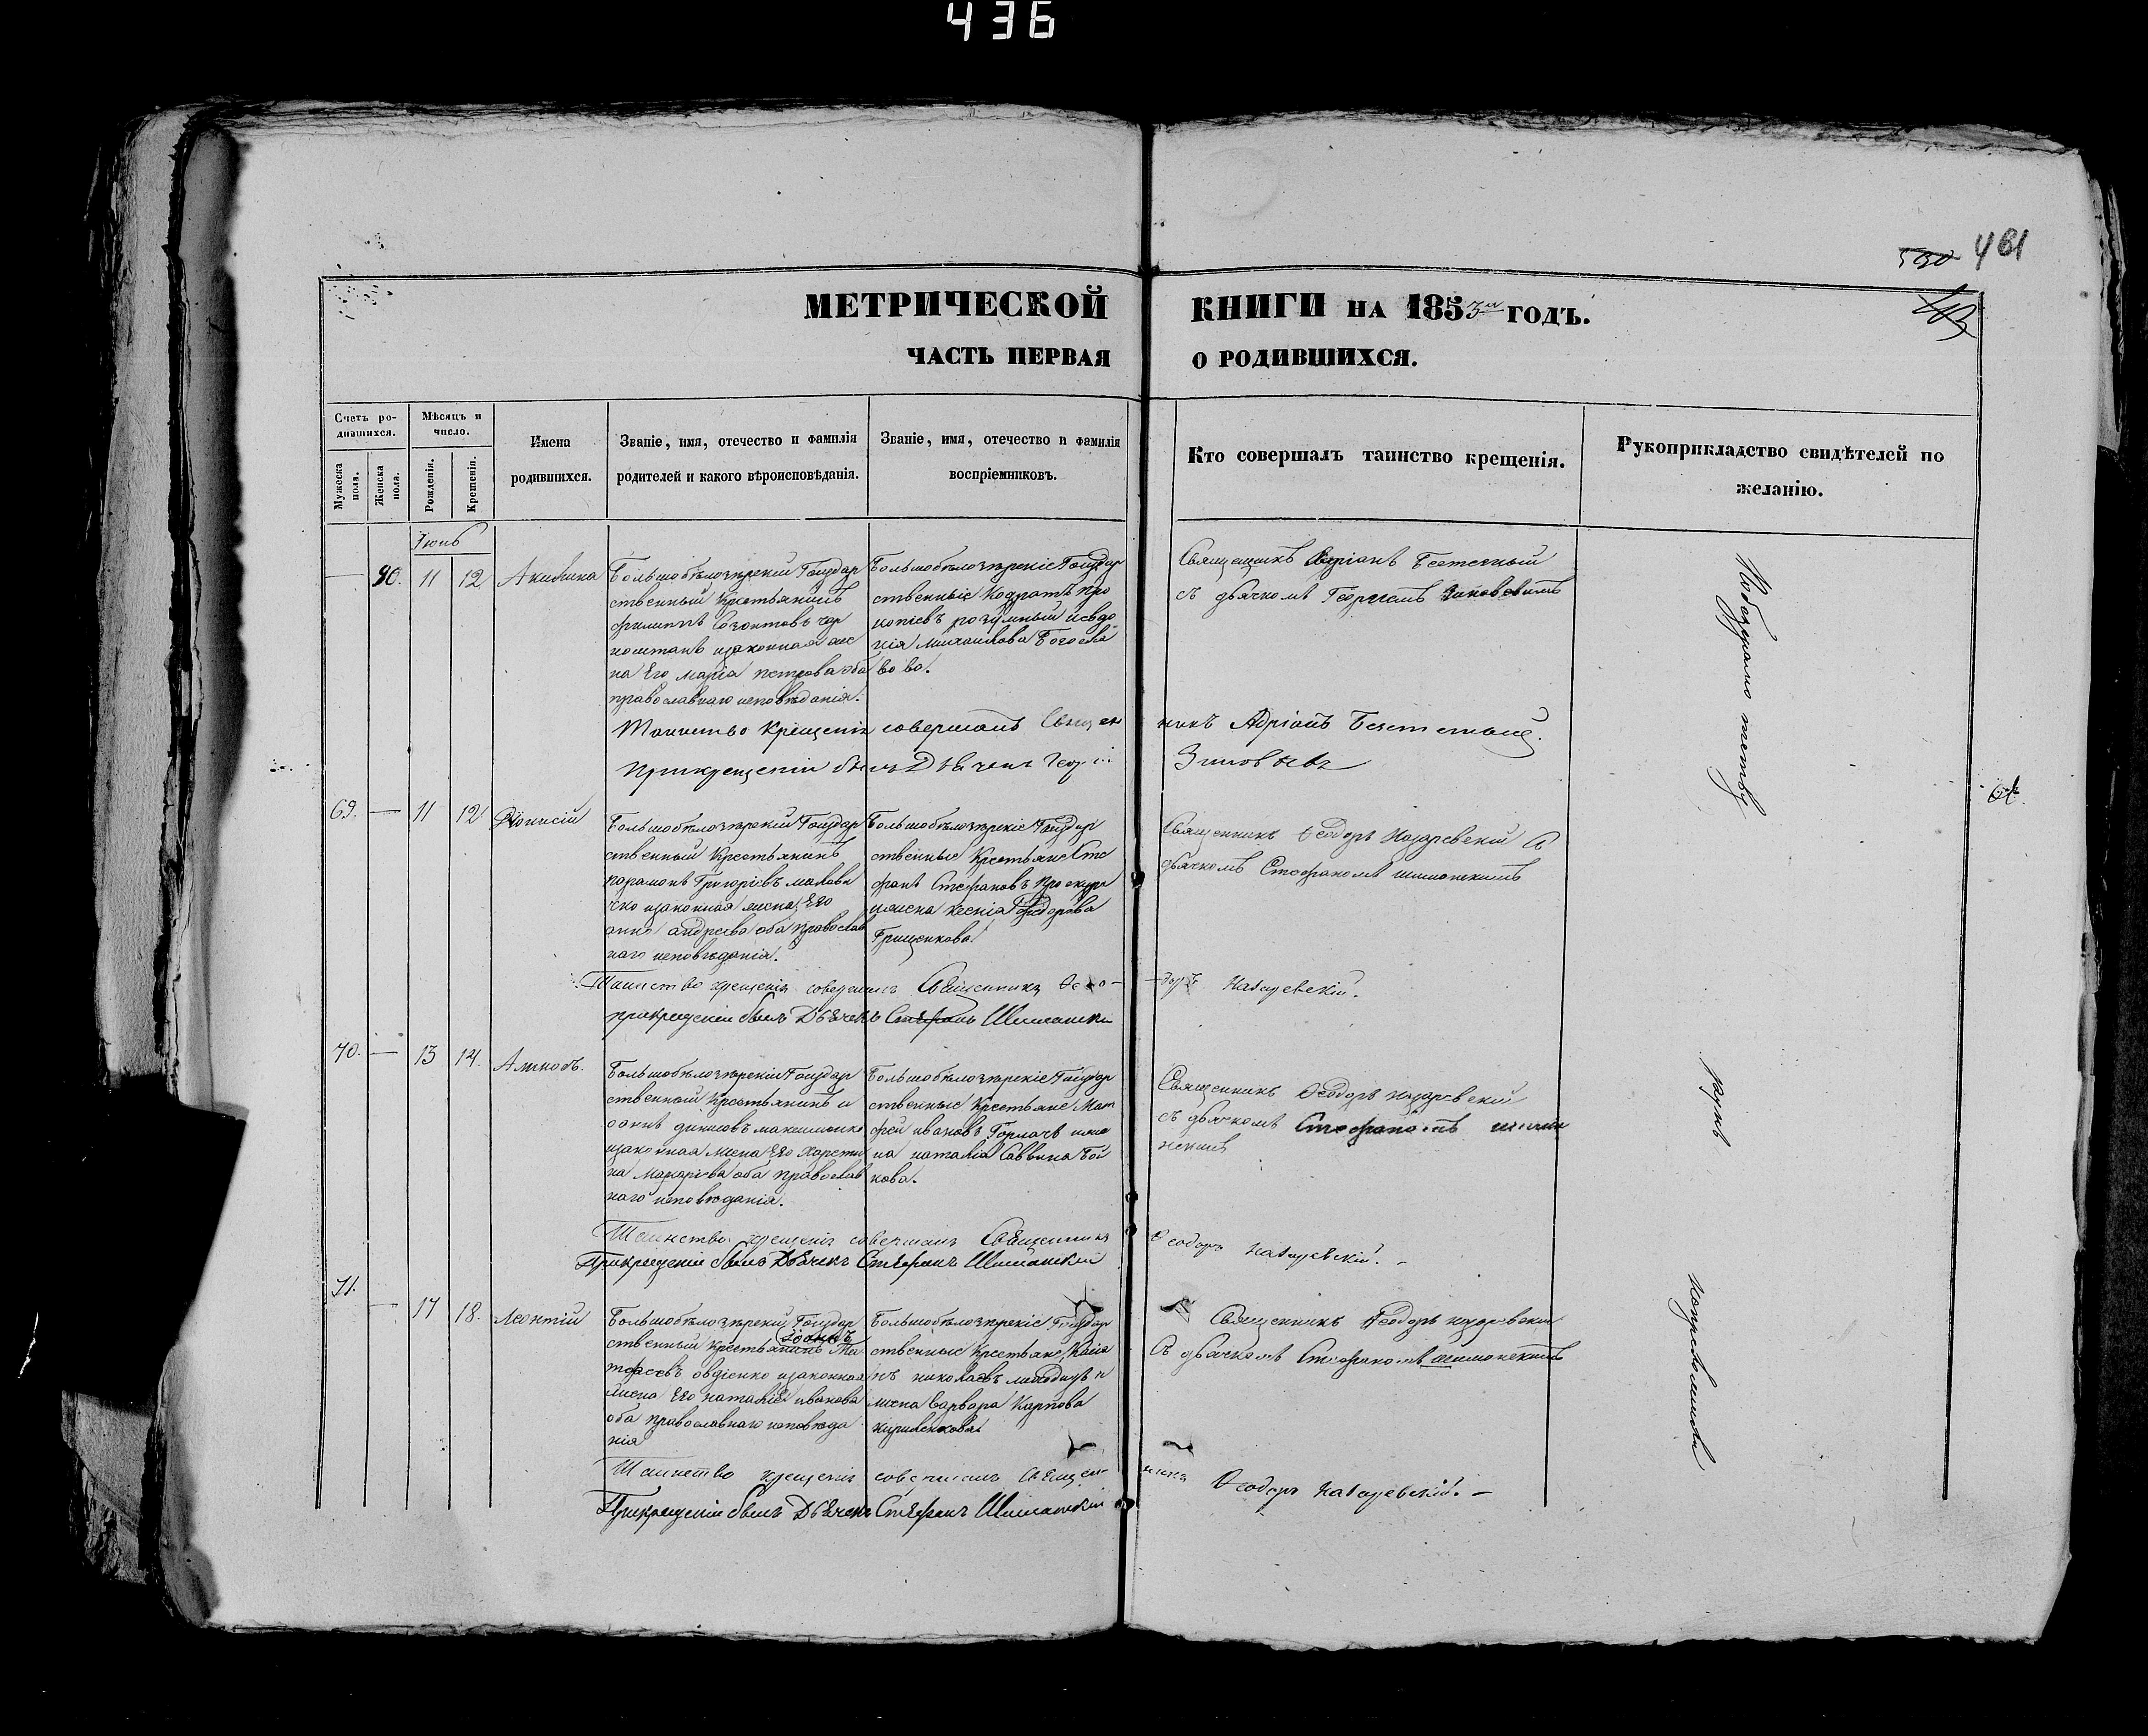 436
530 461
МЕТРИЧЕСКОЙ КНИГИ НА 1853й ГОДЪ.
ЧАСТЬ ПЕРВАЯ О РОДИВШИХСЯ.
Счетъ родившихся.
Мужеска пола.
Женска пола.
Мѣсяцъ и число.
Рожденія.
Крещенія.
Имена родившихся.
Званіе, имя, отечество и фамилія родителей и какого вѣроисповѣданія.
Званіе, имя, отечество и фамилія воспріемниковъ.
Кто совершалъ таинство крещенія.
Рукоприкладство свидѣтелей по желанію.
Іюнь
— 90. 11 12 Акилина
Большобѣлозѣрскій Государ
ственный Крестьянинъ
филиппъ Созонтовъ чер
коштанъ изаконная же
на Его марія петрова оба
православнаго исповѣданія.
Большобѣлозѣрскіе Государ
ственные Кодратъ Про
копіевъ розумный Исвдо
кія михаилова Богосла
вова.
Священникъ Адріанъ Безтенный
съ дьячкомъ Георгіемъ Зиновевимъ
Таинство Крещенія совершалъ Священ
никъ Адріанъ Безтенный.
При крещеніи былъ Дьячекъ Георгій
Зиновьевъ
69. — 11 12 Діонисій
Большобѣлозѣрскій Государ
ственный Крестьянинъ
парамонъ Григоріевъ малови
чко изаконная жена Его
анна андреева оба православ
наго исповѣданія.
Большобѣлозѣрскіе Государ
ственные Крестьяне Сте
фанъ Стефановъ Проскур
ижена ксенія Феодорова
Грищенкова
Священникъ Феодоръ Назаревскій съ
дьячкомъ Стефаномъ шиманскимъ
Таинство крещенія совершалъ Священникъ Фео-
-доръ Назаревскій.
при крещеніи былъ Дьячекъ Стефанъ Шиманскій
70. — 13 14. Амносъ.
Большобѣлозѣрскій Государ
ственный Крестьянинъ и
оаннъ динисовъ максименко
изаконная жена Его Харети
на Макаріева оба православ
наго исповѣданія.
Большобѣлозѣрскіе Государ
ственные Крестьяне Мат
фей ивановъ Горпачъ иже
на наталія Саввина Бой
кова.
Священникъ Феодоръ назаревскій
съ дьячкомъ Стефаномъ шима
нскимъ
Таинство крещенія совершалъ Священникъ
Феодоръ Назаревскій.
При крещеніи былъ Дьячекъ Стефанъ Шиманскій
71. — 17 18. Леонтій
Большобѣлозѣрскій Государ
іоаннъ
ственный крестьянинъ Ма
тфеевъ овдіенко изаконная
жена Его наталія иванова
оба православнаго исповѣда
нія
Большобѣлозѣрскіе Государ
ственные Крестьяне Касія
нъ николаевъ лиходидъ и
жена Варвара Карпова
кириленкова
Священникъ Феодоръ назаревскій
съ дьячкомъ Стефаномъ шиманскимъ
Таинство крещенія совершалъ Священ-
никъ Феодоръ Назаревскій. –
При крещеніи былъ Дьячекъ Стефанъ Шиманскій